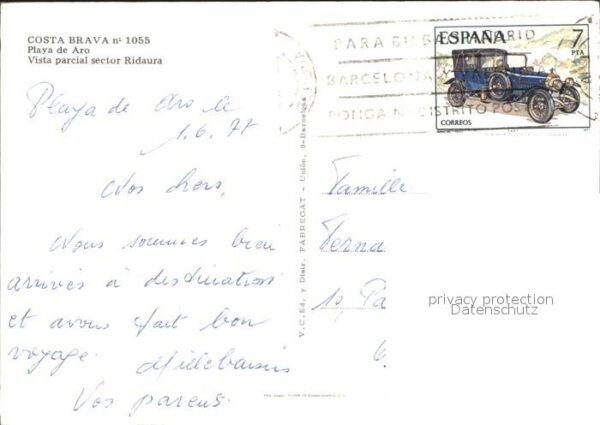 COSTA BRAVA nº 1055
Playa de Aro
Vista parcial sector Ridaura
ESPAÑA 7
PTA
CORREOS
PARA BILBAO, MADRID
BARCELONA
PONGA DISTRITO POSTAL
Playa de Aro le
1.6.77
Nos chers,
Nous sommes bien
arrivés à destination
et avons fait bon
voyage. Mille baisers
Vos parents.
V.C. Ed. y Distr. FABREGAT - Unión, 9-Barcelona
Famille
10, Pa
6.
privacy protection
Datenschutz